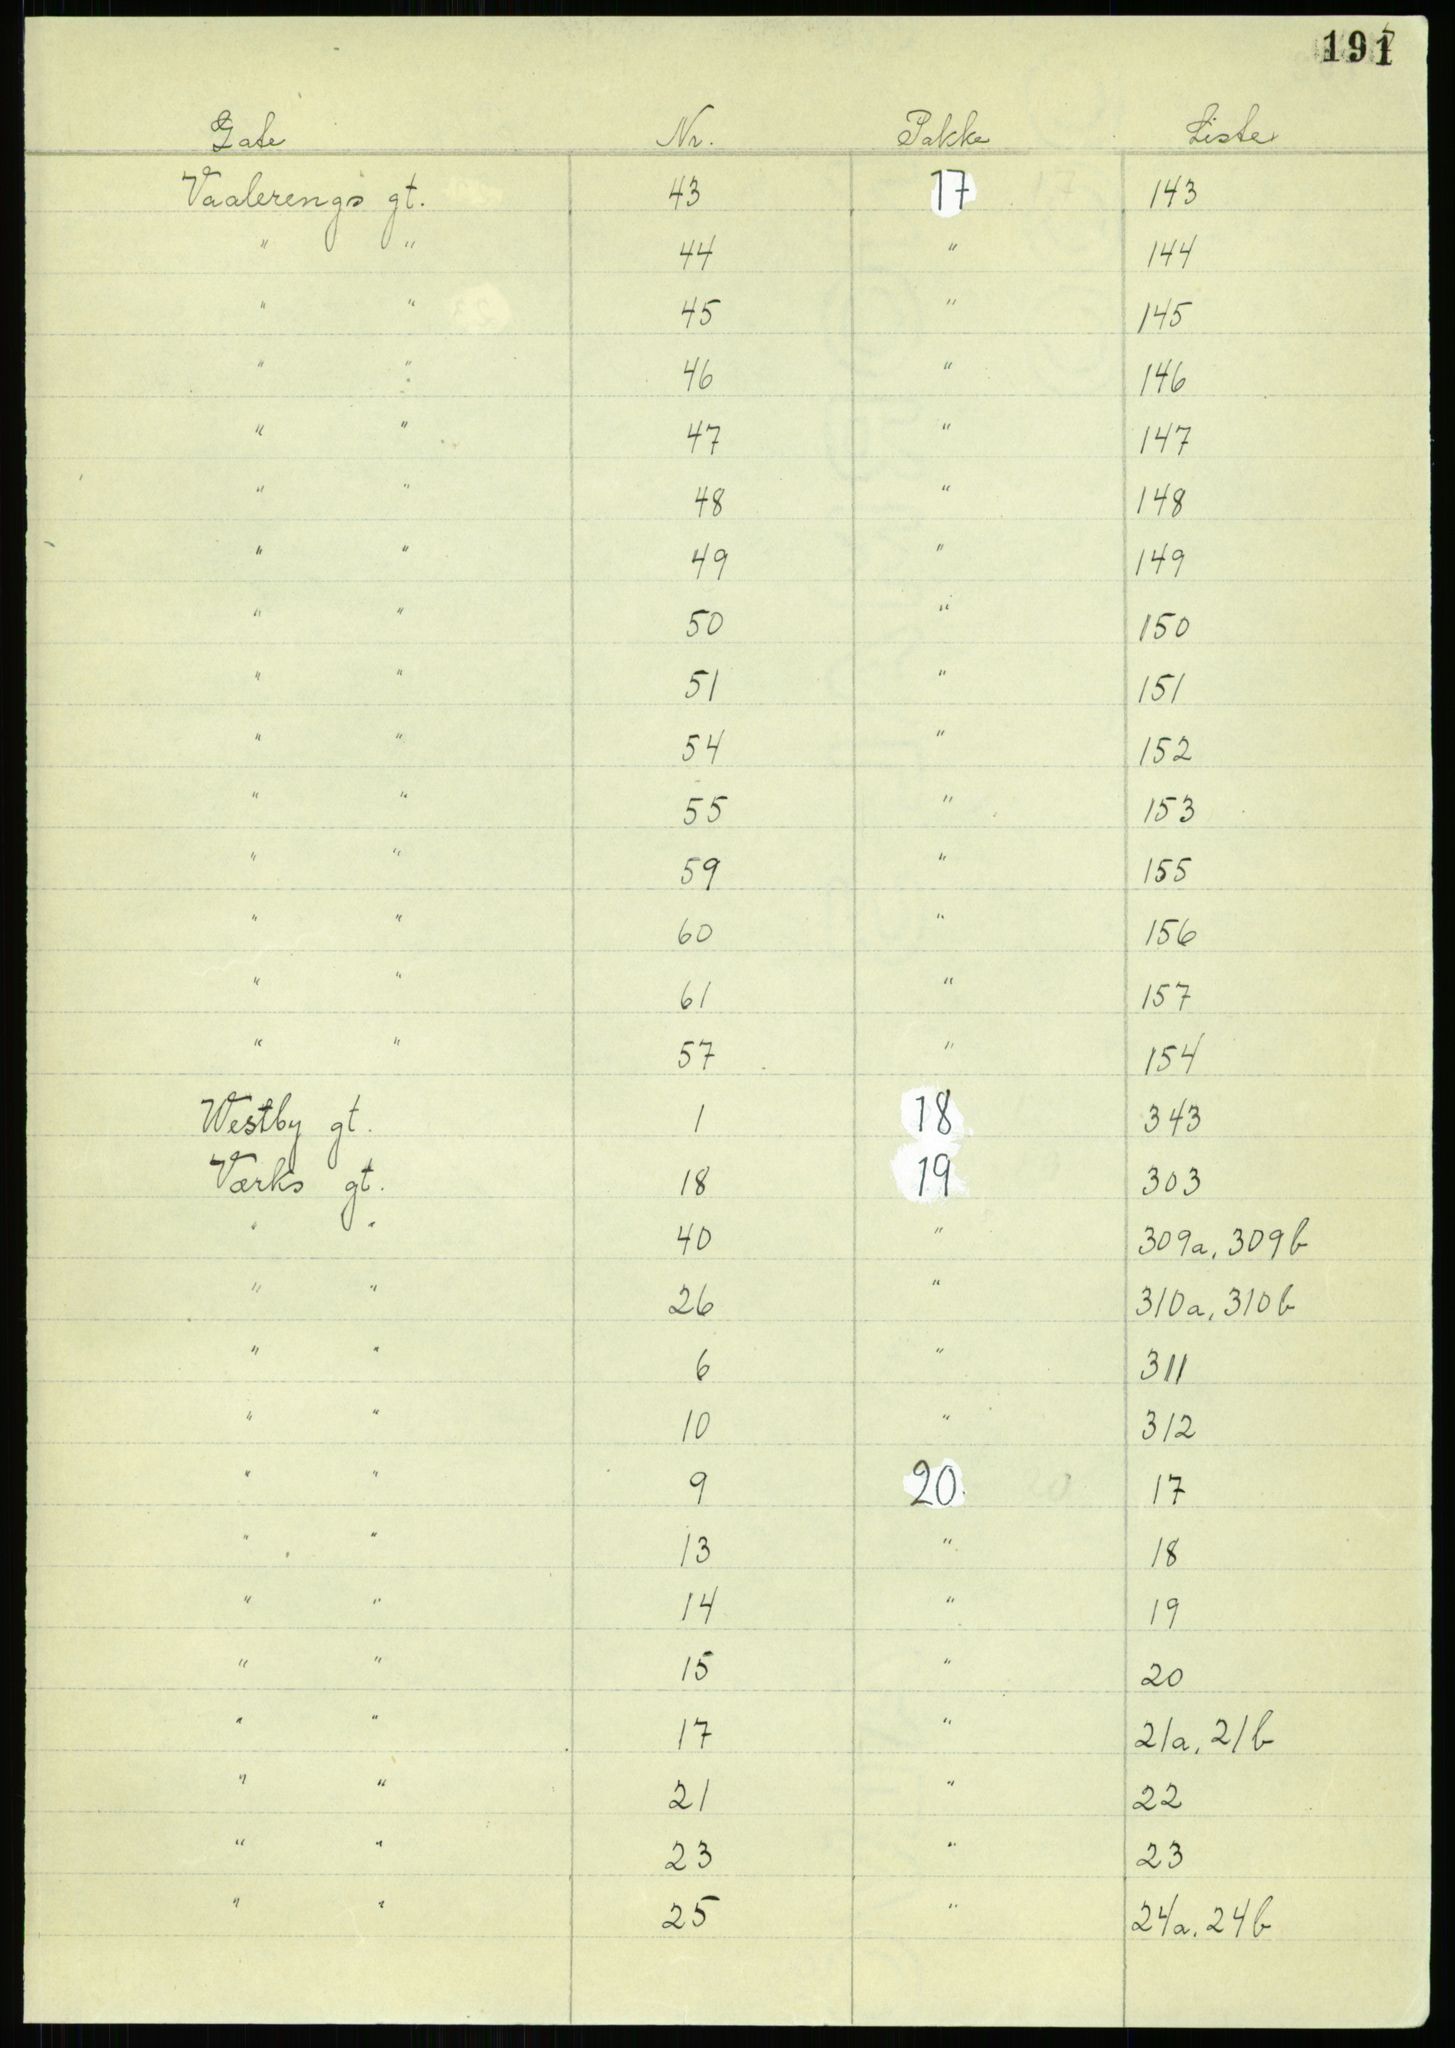 191
Gate Nr. Pakke Liste
Vaalerengs gt. 43 17 143
" " 44 " 144
" " 45 " 145
" " 46 " 146
" " 47 " 147
" " 48 " 148
" " 49 " 149
" " 50 " 150
" " 51 " 151
" " 54 " 152
" " 55 " 153
" " 59 " 155
" " 60 " 156
" " 61 " 157
" " 57 " 154
Westby gt. 1 18 343
Værks gt. 18 19 303
" " 40 " 309a, 309b
" " 26 " 310a, 310b
" " 6 " 311
" " 10 " 312
" " 9 20 17
" " 13 " 18
" " 14 " 19
" " 15 " 20
" " 17 " 21a, 21b
" " 21 " 22
" " 23 " 23
" " 25 " 24a, 24b